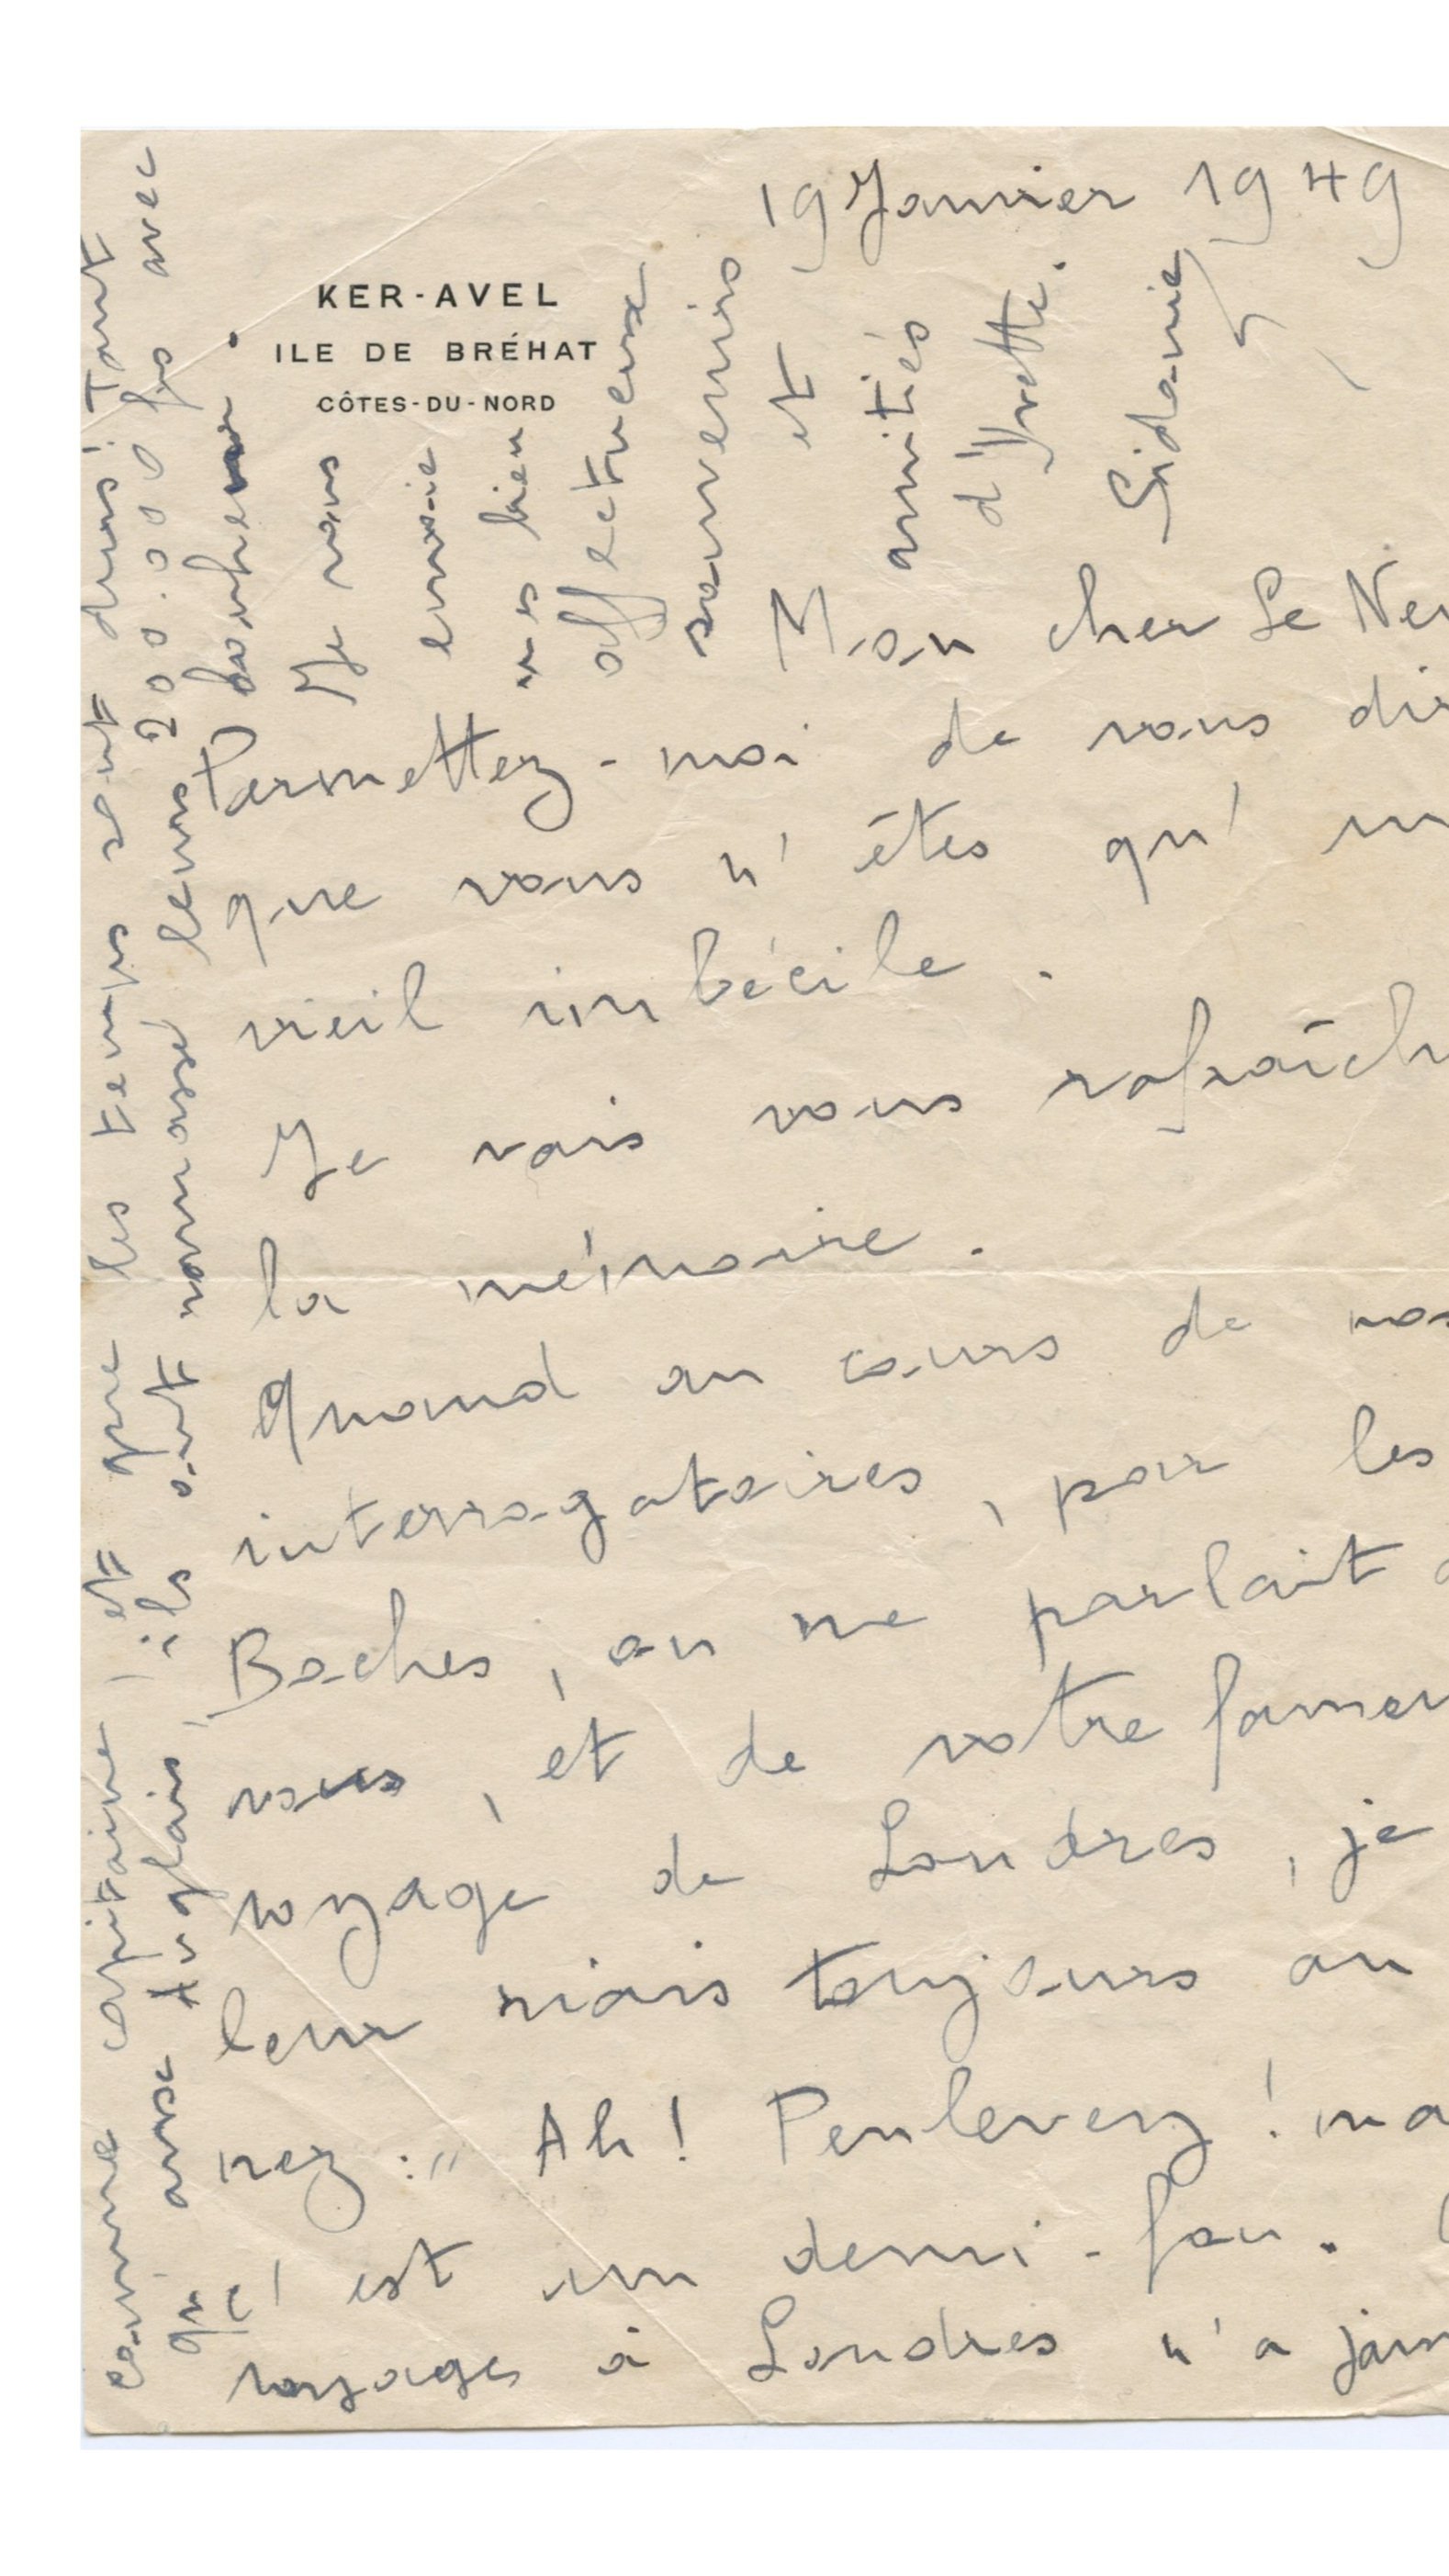 19 Janvier 1949
KER-AVEL
ILE DE BRÉHAT
CÔTES-DU-NORD
Mon cher Le Ner
Permettez-moi de vous dir
que vous n'êtes qu'un
vieil imbécile.
Je vais vous rafraîch
la mémoire.
Quand au cours de nos
interrogatoires, par les
Boches, on me parlait d
vous, et de votre fameu
voyage de Londres, je
leur riais toujours au
nez : " Ah ! Penleverz ! ma
c'est un demi-fou.
voyages à Londres n'a jam
comme capitaine, et que les temps sont durs ! Tant
qu'aux Anglais, ils ont ramassé leurs 20.000.000 frs avec
bonheur.
Je vous
envoie
mes bien
affectueux
souvenirs
et
amitiés
d'Yvette.
Sidonie